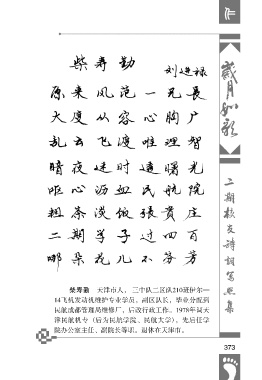 柴寿勤
刘进禄
原来风范一兄长
大度从容心胸广
乱云飞渡唯理智
暗夜迷时遠曙光
呕心沥血民航院
粗茶淡饭张贵庄
二期学子过四百
哪朵花儿不芬芳
柴寿勤 天津市人，三中队二区队210班伊尔—
14飞机发动机维护专业学员，副区队长，毕业分配到
民航成都管理局维修厂，后改行政工作。1978年调天
津民航机专（后为民航学院、民航大学），先后任学
院办公室主任、副院长等职，退休在天津市。
岁月如歌
二期校友诗词写照集
373